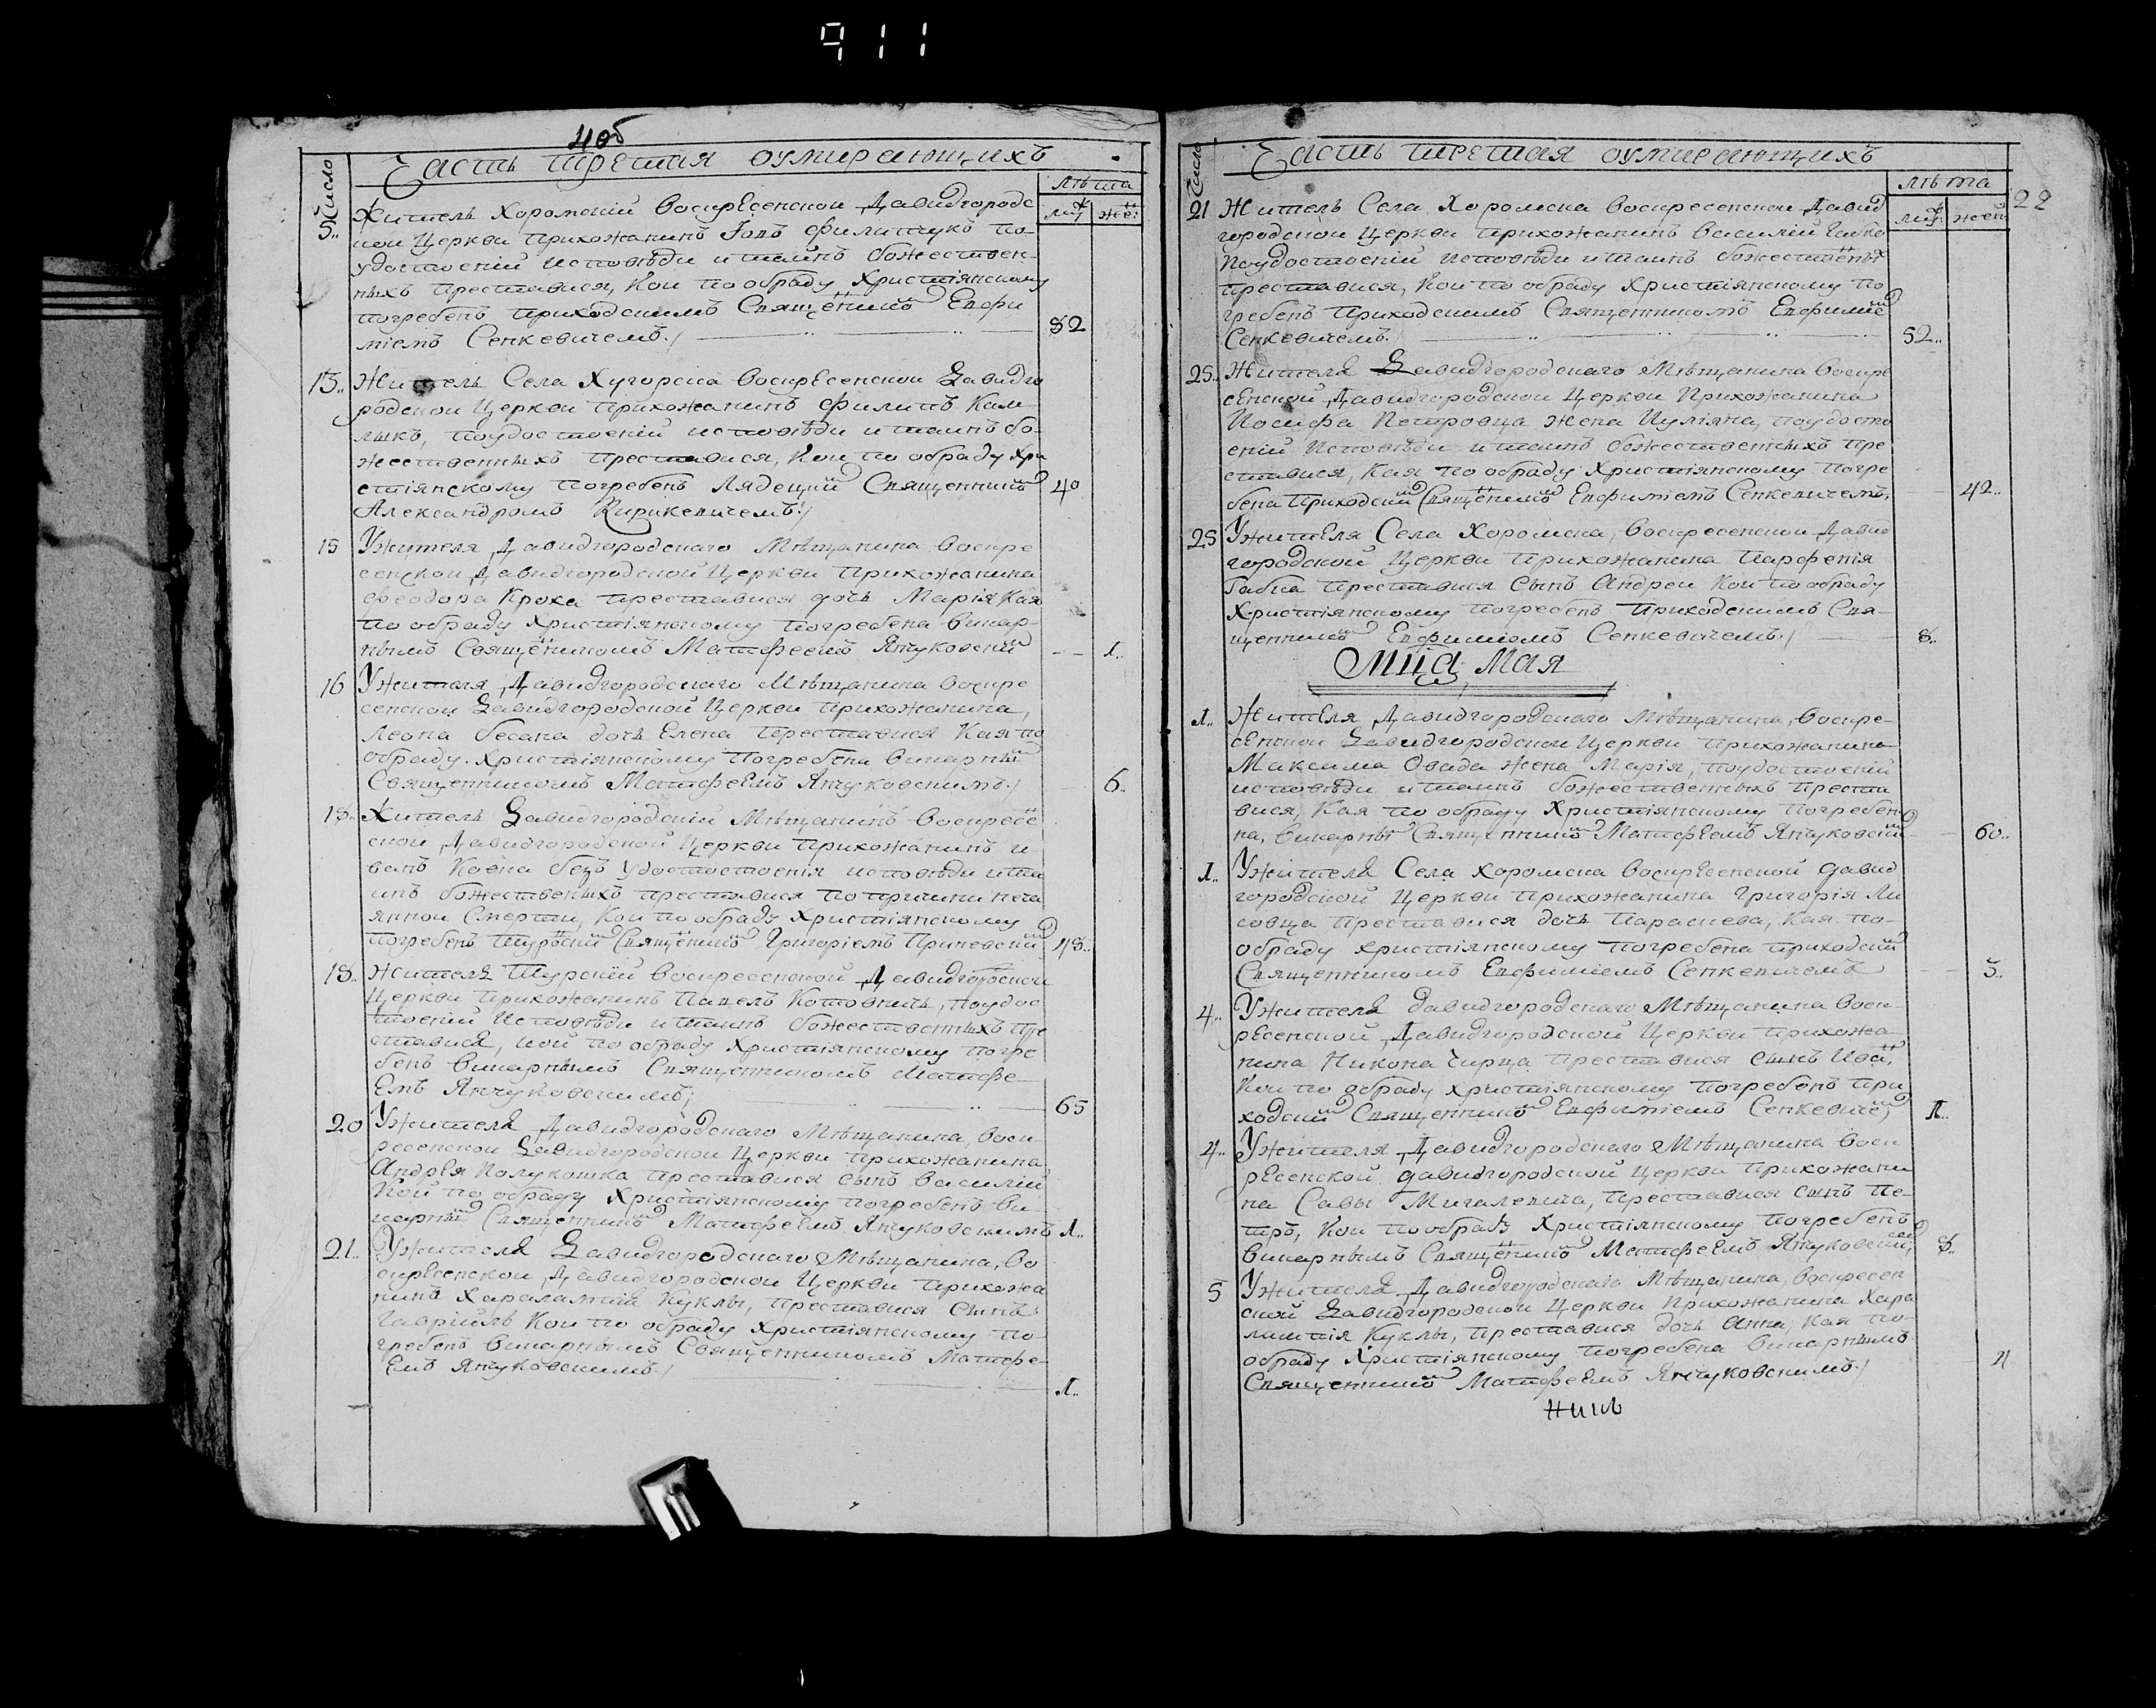 911
4об
Часть третая оумирающихъ
Число
Лѣта
муж жен
5.. Житель Хоромскій Воскресенской Давидгородс
кой Церкви Прихожанинъ Іовъ Филипчукъ по
удостоеній исповѣди и таинъ божествен-
ныхъ преставися, Кои по обраду Христіянскому
погребенъ приходскимъ Священникомъ Евфи
міемъ Сенкевичемъ./ 82
13.. Житель Села Хугорска Воскресенской Давидго
родской Церкви прихожанинъ Филипъ Кал
лыкъ, поудостоеній исповѣди и таинъ бо-
жественныхъ преставися, Кои по обраду Хри
стіянскому погребенъ Лядецким Священником 40
Александромъ Кирикевичемъ./
15 Ужителя Давидгородскаго Мѣщанина Воскре
сенской Давидгородской Церкви прихожанина
Феодора Кроха преставися дочь Марія Кая
по обраду Христіянскому погребена Викар-
нымъ Священикомъ Матфеемъ Янчуковским 1..
16 Ужителя Давидгородскаго Мѣщанина Воскре
сенской Давидгородской Церкви прихожанина,
Леона бегана дочь Елена преставися Кая по
обраду Христіянскому погребена викарным
Священникомъ Матфеемъ Янчуковскимъ./ 6..
18.. Житель Давидгородскій Мѣщанинъ Воскресе
ской Давидгородской Церкви прихожанинъ и
ванъ Коена безъ удостостоенія исповѣди и та
инъ божественыхъ преставися по причини неча
янной Смерти, Кои по обраду Христіянскому
погребенъ Турскии Священикомъ Григоріемъ Приневским 48..
18.. Жителя Турскій Воскресенской Давидгородской
Церкви прихожанинъ Павелъ Котовичъ, поудос
тоеній исповѣди и таинъ божественныхъ пре
ставися, кой по обраду Христіянскому погре
бенъ викарнымъ Священникомъ Матфе-
емъ Янчуковскимъ; 65
20 Ужителя Давидгородскаго Мѣщанина, Воск-
ресенской Давидгородской Церкви прихожанина
Андрея Полукошка преставися сынъ Василий
Кой по обраду Христіянскому погребенъ ви-
карным Священником Матфеемъ Янчуковскимъ 1..
21.. Ужителя Давидгородскаго Мѣщанина, Во
скресенской Давидгородской Церкви прихожа
нинъ Харалампій Куклы, преставися Сынъ
Гавріилъ Кои по обраду Христіянскому по-
гребенъ викарнымъ Священникомъ Матфе-
емъ Янчуковскимъ./ 1..
Часть третая оумирающихъ
22
Число
Лѣта
муж: жен:
21 Житель Села Хоромска Воскресенской Давид
городской Церкви прихожанинъ Василій
Поудостоеній исповѣди и таинъ божественых
преставися, Кои по обраду Христіянскому по
гребенъ Приходскимъ Священникомъ Евфиміем
Сенкевичемъ./ 52..
25.. Жителя Давидгородскаго Мѣщанина Воскре
сенской Давидгородской Церкви Прихожанина
Иосифа Петровца жена Иуліяна, поудосто
еній исповѣди и таинъ божественныхъ пре
ставися, Кая по обраду Христіянскому погре
бена Приходским Священиком Евфиміемъ Сенкевичемъ, 42..
25 Ужителя Села Хоромска, Воскресенской Давид
городской Церкви прихожанина Парфенія
Габца преставися Сынъ Андреи Кои по обраду
Христіянскому погребенъ Приходскимъ Свя-
щенником Евфиміемъ Сенкевичемъ./ 8..
Мца Мая
1.. Жителя Давидгородскаго Мѣщанина, Воскре-
сенской Давидгородской Церкви прихожанина
Максима Овада жена Марія, поудостоеній
исповѣди и таинъ божественныхъ преста
вися, Кая по обраду Христіянскому погребен
на, викарным Священником Матфеемъ Янчуковским 60..
1.. Ужителя Села Хоромска Воскресенской Давид
городской Церкви прихожанина Григорія Ли
совца преставися дочь Параскева, Кая по-
обраду Христіянскому погребена приходским
Священникомъ Евфиміемъ Сенкевичемъ 3..
4.. Ужителя Давидгородскаго Мѣщанина Воск-
ресенской Давидгородской Церкви прихожа-
нина Никона Чирца преставися сынъ Иван,
Кои по обраду христіянскому погребенъ при
ходским Священником Евфиміемъ Сенкевичем, 1..
4.. Ужителя Давидгородскаго Мѣщанина Воск
ресенской Давидгородской Церкви прихожани
на Савы Мигалевича, преставися сынъ Пе-
тръ, Кои по обраду Христіянскому погребенъ
викарнымъ Священиком Матфеемъ Янчуковским, 8..
5 Ужителя Давидгородскаго Мѣщанина, Воскресен
ской Давидгородской Церкви Прихожанина Хара
лампія Куклы, преставися дочь Анна, Кая по-
обраду Христіянскому погребена викарнымъ
Священником Матфеемъ Янчуковскимъ./ 4